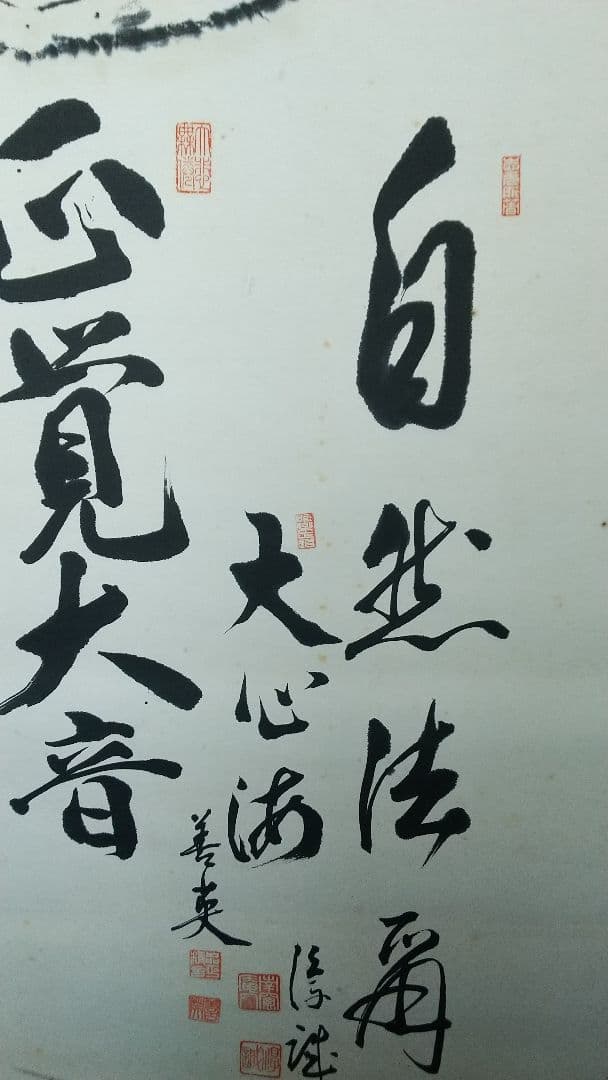 自然法爾
大心海
善英
正覚大音